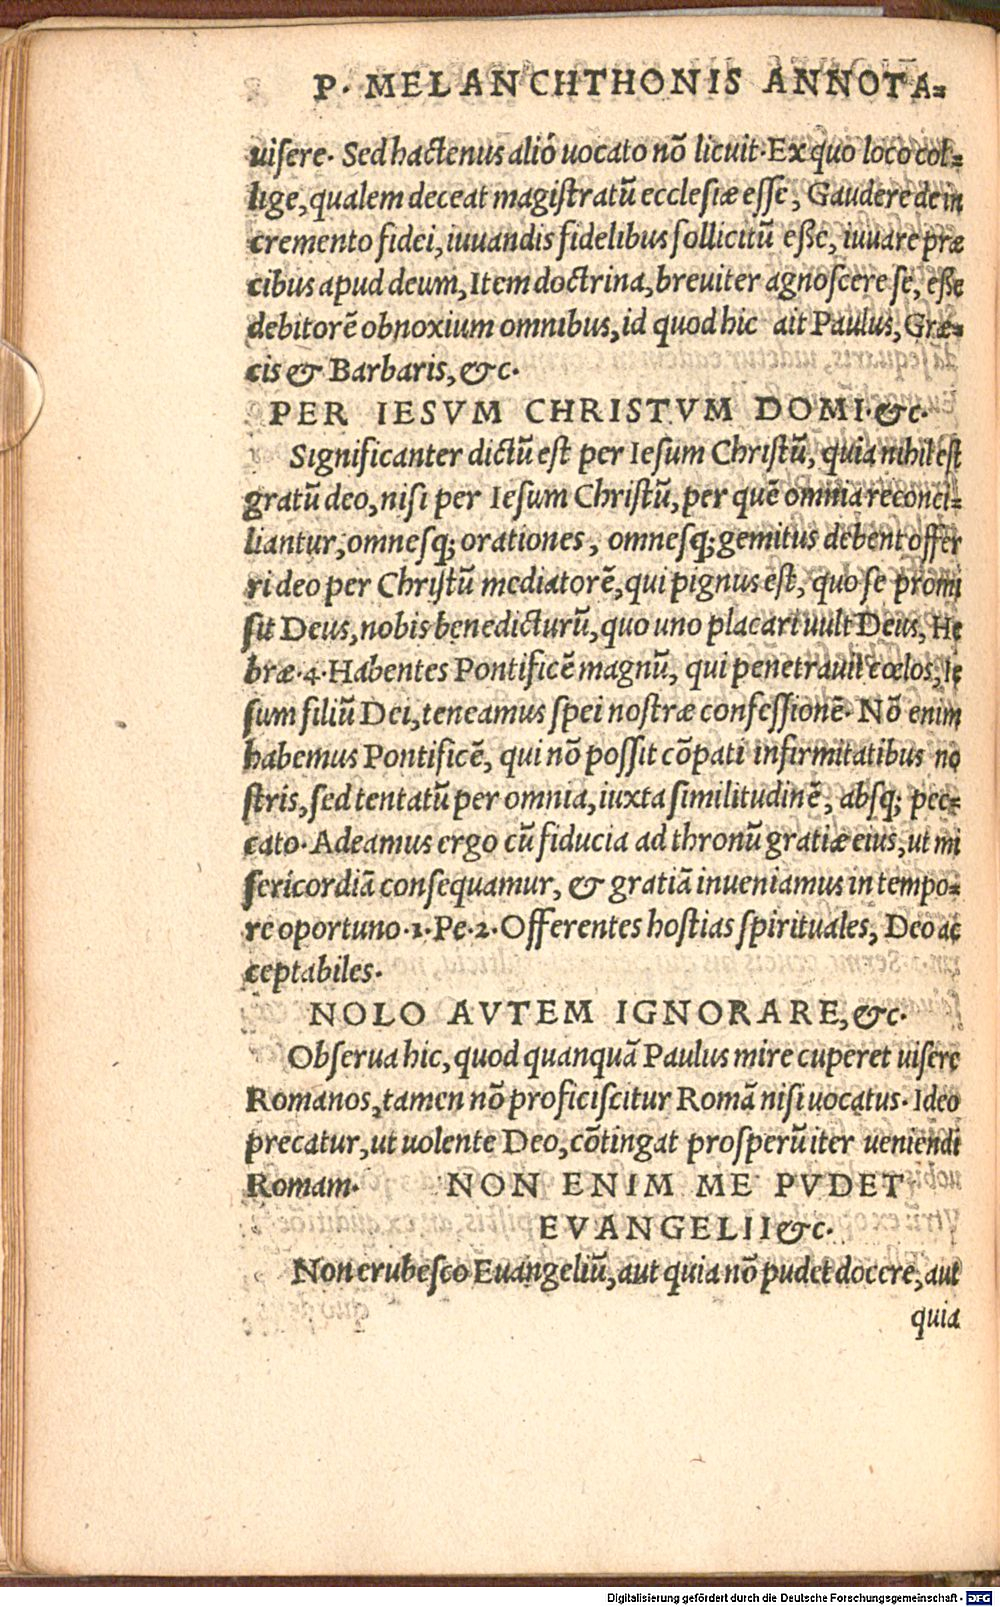 P. MELANCHTHONIS ANNOTA=
uisere. Sed hactenus alió uocato nō licuit. Ex quo loco col=
lige, qualem deceat magistratū ecclesiæ esse, Gaudere de in
cremento fidei, iuuandis fidelibus sollicitū esse, iuuare præ
cibus apud deum, Item doctrina, breuiter agnoscere se, esse
debitorē obnoxium omnibus, id quod hic ait Paulus, Græ=
cis & Barbaris, &c.
PER IESVM CHRISTVM DOMI. &c.
Significanter dictū est per Iesum Christū, quia nihil est
gratū deo, nisi per Iesum Christū, per quē omnia reconci=
liantur, omnesq; orationes, omnesq; gemitus debent offer
ri deo per Christū mediatorē, qui pignus est, quo se promi
sit Deus, nobis benedicturū, quo uno placari uult Deus, He
bræ. 4. Habentes Pontificē magnū, qui penetrauit cœlos, Ie
sum filiū Dei, teneamus spei nostræ confessionē. Nō enim
habemus Pontificē, qui nō possit cōpati infirmitatibus no
stris, sed tentatū per omnia, iuxta similitudinē, absq; pec=
cato. Adeamus ergo cū fiducia ad thronū gratiæ eius, ut mi
sericordiā consequamur, & gratiā inueniamus in tempo=
re oportuno. 1. Pe. 2. Offerentes hostias spirituales, Deo ac
ceptabiles.
NOLO AVTEM IGNORARE, &c.
Obserua hic, quod quanquā Paulus mire cuperet uisere
Romanos, tamen nō proficiscitur Romā nisi uocatus. Ideo
precatur, ut uolente Deo, cōtingat prosperū iter ueniendi
Romam. NON ENIM ME PVDET
EVANGELII &c.
Non erubesco Euangeliū, aut quia nō pudet docere, aut
quia
Digitalisierung gefördert durch die Deutsche Forschungsgemeinschaft - DFG